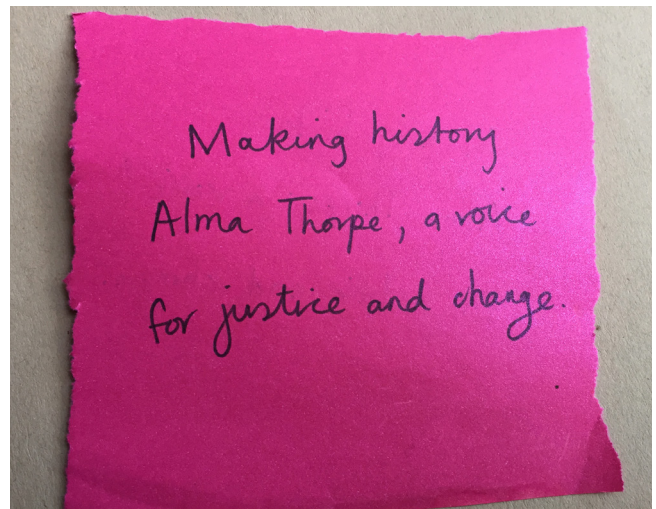 Making history
Alma Thorpe, a voice
for justice and change.